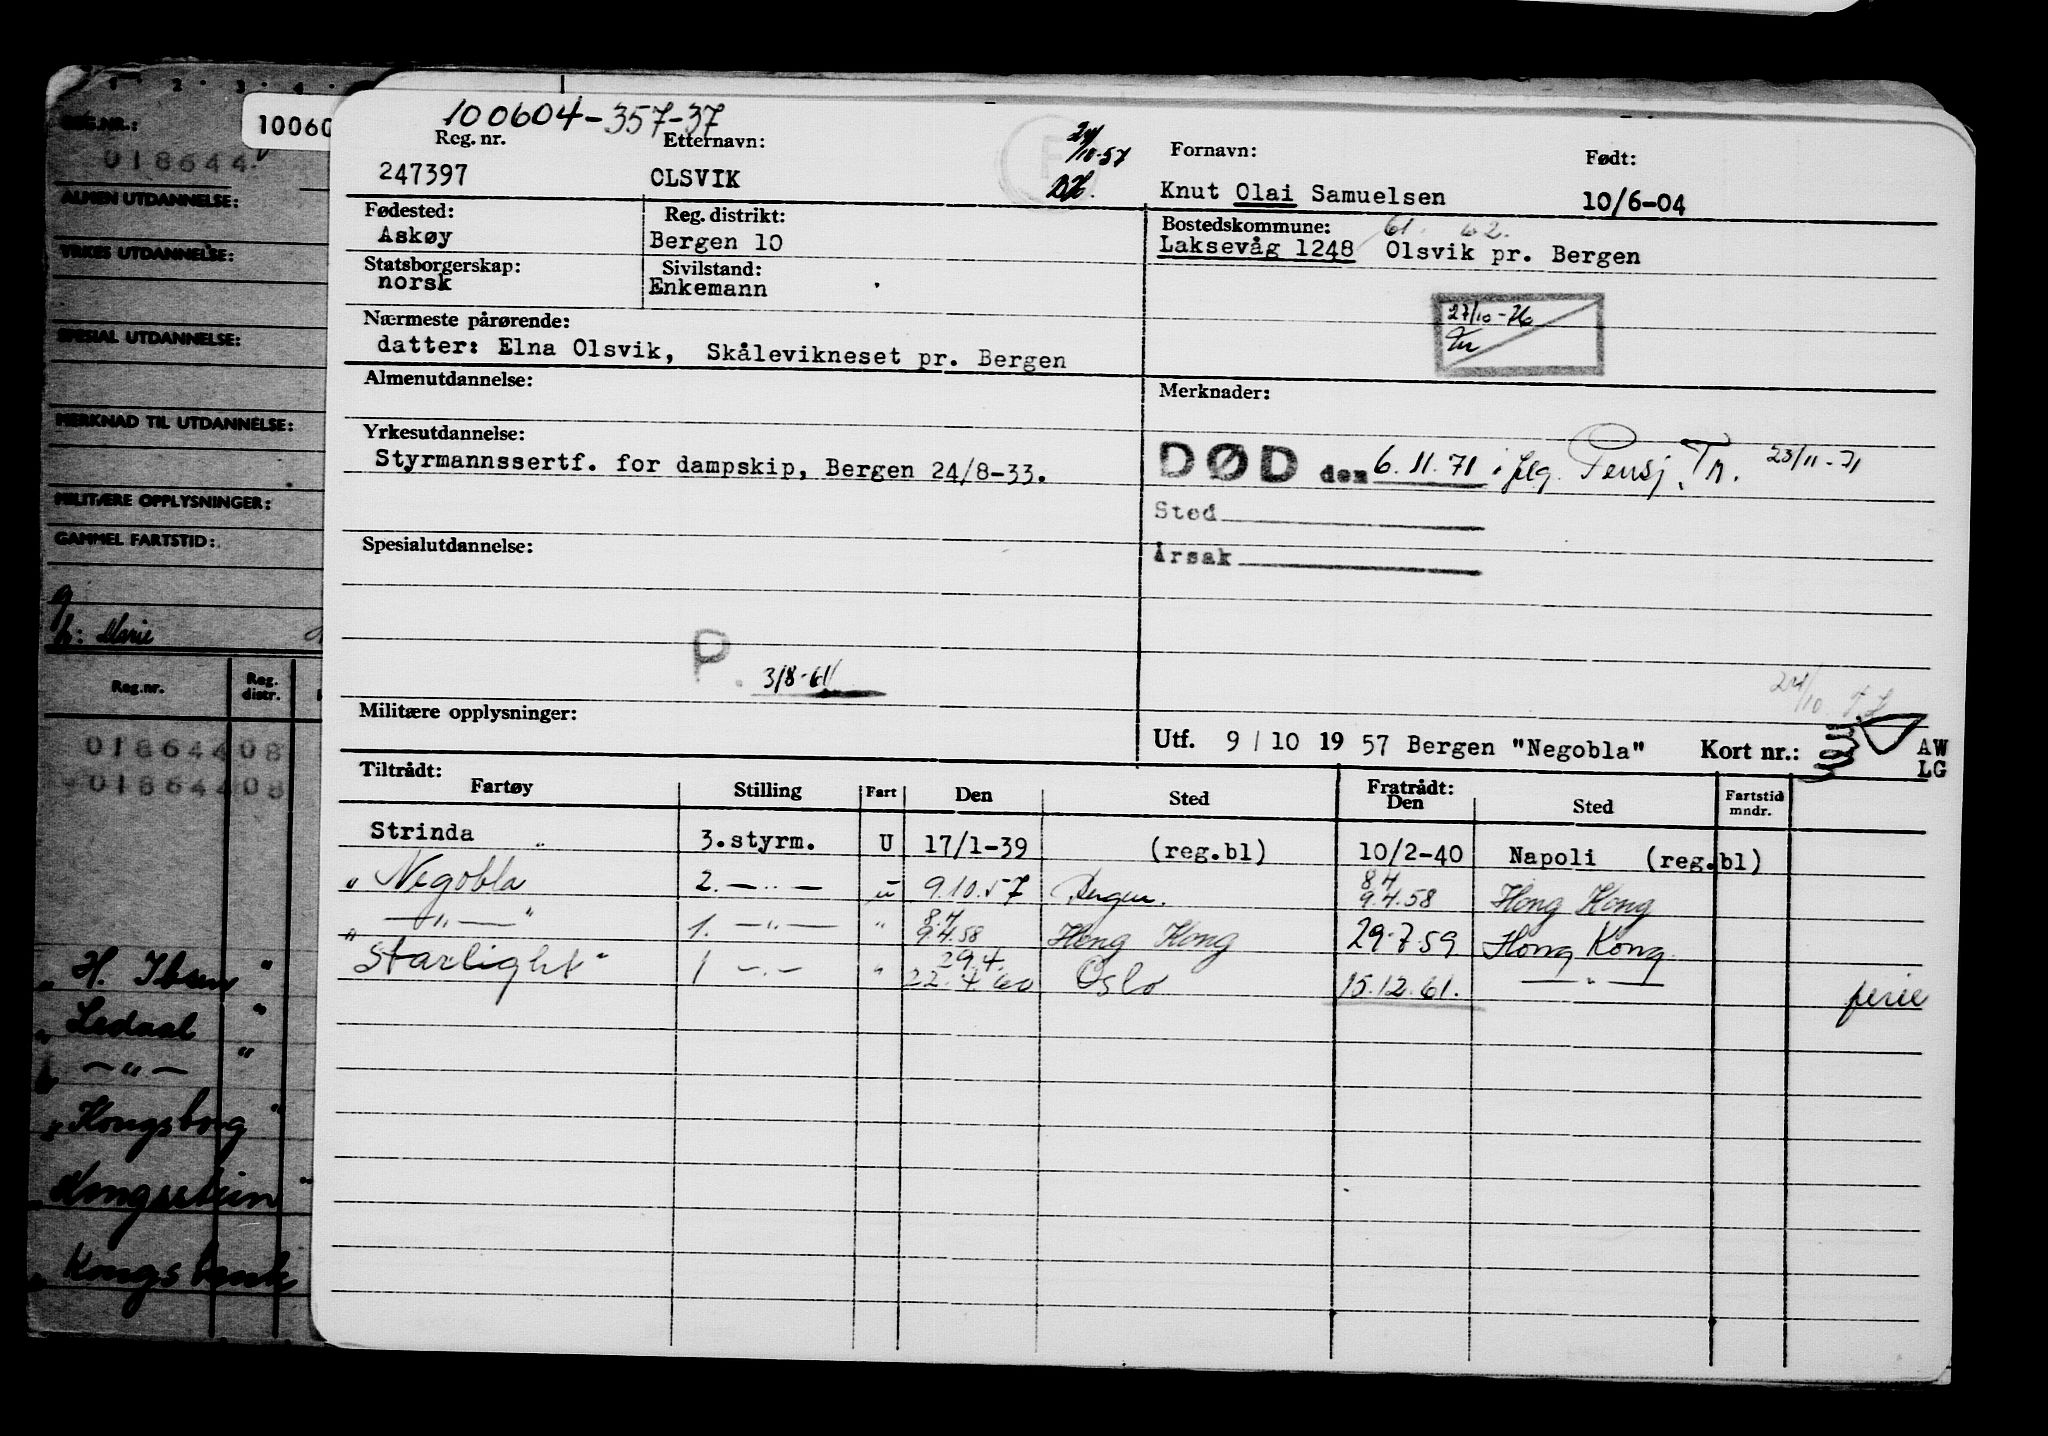 REG.NR.:
10060
018644
ALMEN UTDANNELSE:
YRKES UTDANNELSE:
SPESIAL UTDANNELSE:
MERKNAD TIL UTDANNELSE:
MILITÆRE OPPLYSNINGER:
GAMMEL FARTSTID:
h: Marie
Reg.nr. Reg. distr.
01864408
01864408
" H. Ibsen "
" Ledaal "
" — " — "
" Kongsborg "
" Kongsstein "
" Kongsbank
100604-357-37
Reg. nr. Etternavn: 24/10-57 Fornavn: Født:
247397 OLSVIK Knut Olai Samuelsen 10/6-04
Fødested: Reg. distrikt: Bostedskommune: 61. 62.
Askøy Bergen 10 Laksevåg 1248 Olsvik pr. Bergen
Statsborgerskap: Sivilstand:
norsk Enkemann
27/10-76
Nærmeste pårørende:
datter: Elna Olsvik, Skålevikneset pr. Bergen
Almenutdannelse: Merknader:
Yrkesutdannelse:
Styrmannssertf. for dampskip, Bergen 24/8-33.
DØD den 6.11.71 i flg. Pensj. Tr. 23/11-71
Sted
Årsak
Spesialutdannelse:
P. 3/8-61
24/10
Militære opplysninger:
Utf. 9 / 10 19 57 Bergen "Negobla" Kort nr.: AW
LG
Tiltrådt: Fratrådt:
Fartøy Stilling Fart Den Sted Den Sted Fartstid mndr.
Strinda " 3.styrm. U 17/1-39 (reg.bl) 10/2-40 Napoli (reg.bl)
" Negobla 2. — " — u 9.10.57 Bergen. 8 4 9.4.58 Hong Kong
" — " — " 1. — " — " 8.4 9.4.58 Hong Kong 29.7.59 Hong Kong
" Starlight " 1 — " — " 29.4. 22.4.60 Oslo 15.12.61. — " — ferie